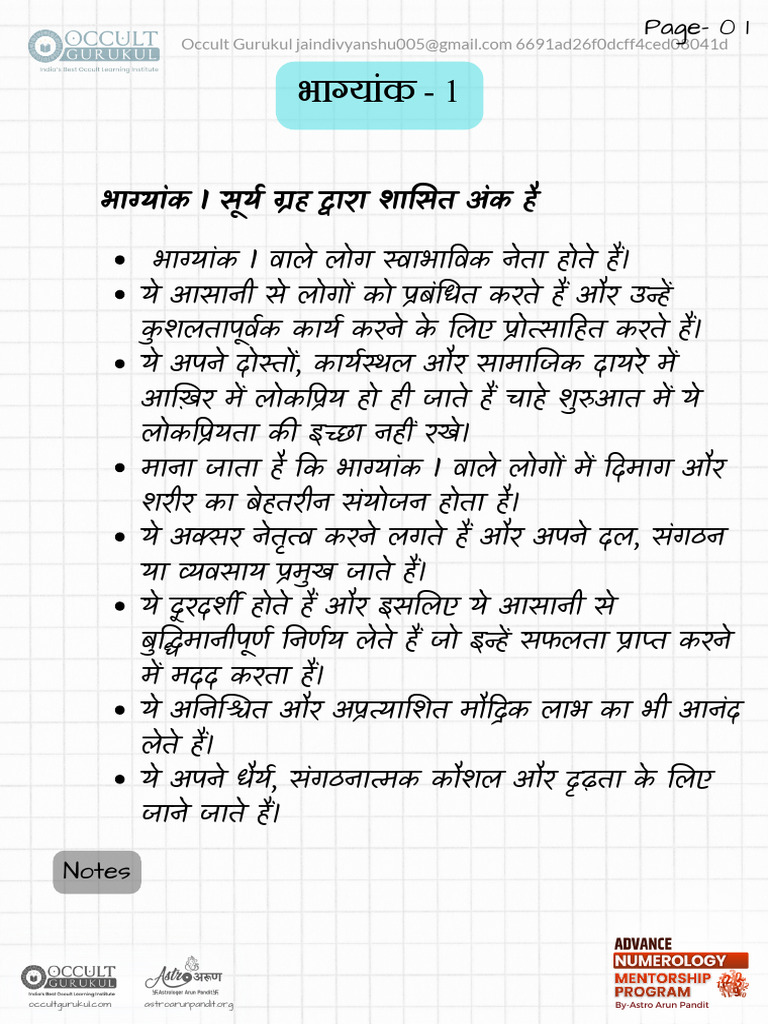 Page- 01
OCCULT
GURUKUL
India's Best Occult Learning Institute
Occult Gurukul jaindivyanshu005@gmail.com 6691ad26f0dcff4ced03041d
भाग्यांक - 1
भाग्यांक 1 सूर्य ग्रह द्वारा शासित अंक है
• भाग्यांक 1 वाले लोग स्वाभाविक नेता होते हैं।
• ये आसानी से लोगों को प्रबंधित करते हैं और उन्हें
कुशलतापूर्वक कार्य करने के लिए प्रोत्साहित करते हैं।
• ये अपने दोस्तों, कार्यस्थल और सामाजिक दायरे में
आख़िर में लोकप्रिय हो ही जाते हैं चाहे शुरुआत में ये
लोकप्रियता की इच्छा नहीं रखे।
• माना जाता है कि भाग्यांक 1 वाले लोगों में दिमाग और
शरीर का बेहतरीन संयोजन होता है।
• ये अक्सर नेतृत्व करने लगते हैं और अपने दल, संगठन
या व्यवसाय प्रमुख जाते हैं।
• ये दूरदर्शी होते हैं और इसलिए ये आसानी से
बुद्धिमानीपूर्ण निर्णय लेते हैं जो इन्हें सफलता प्राप्त करने
में मदद करता हैं।
• ये अनिश्चित और अप्रत्याशित मौद्रिक लाभ का भी आनंद
लेते हैं।
• ये अपने धैर्य, संगठनात्मक कौशल और दृढ़ता के लिए
जाने जाते हैं।
Notes
OCCULT
GURUKUL
India's Best Occult Learning Institute
occultgurukul.com
Astro अरुण
卐Astrologer Arun Pandit卐
astroarunpandit.org
ADVANCE
NUMEROLOGY
MENTORSHIP
PROGRAM
By-Astro Arun Pandit